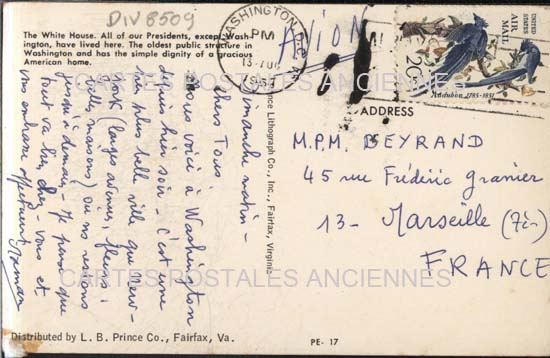 DIV8509
The White House. All of our Presidents, except Wash-
ington, have lived here. The oldest public structure in
Washington and has the simple dignity of a gracious
American home.
WASHINGTON, D.C.
PM
AVION
UNITED STATES
AIR MAIL
20c
Audubon 1785-1851
ADDRESS
M.P.M. BEYRAND
45 rue Frédéric Granier
13 - Marseille (7è)
FRANCE
Dimanche matin -
chers Tous
Nous voici à Washington
depuis hier soir - C'est une
plus belle ville que New-
York (larges avenues, fleurs,
belles maisons) où nous restons
jusqu'à demain - Je pense que
tout va bien chez - vous et
vous embrasse affectueusement
Prince Lithograph Co., Inc., Fairfax, Virginia
CARTES POSTALES ANCIENNES
CARTES POSTALES ANCIENNES
Distributed by L. B. Prince Co., Fairfax, Va.
PE- 17